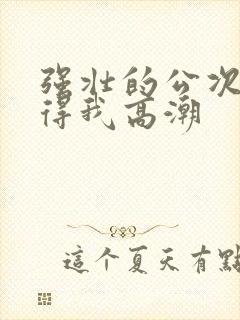 强壮的公次
得我高潮
這个夏天有點